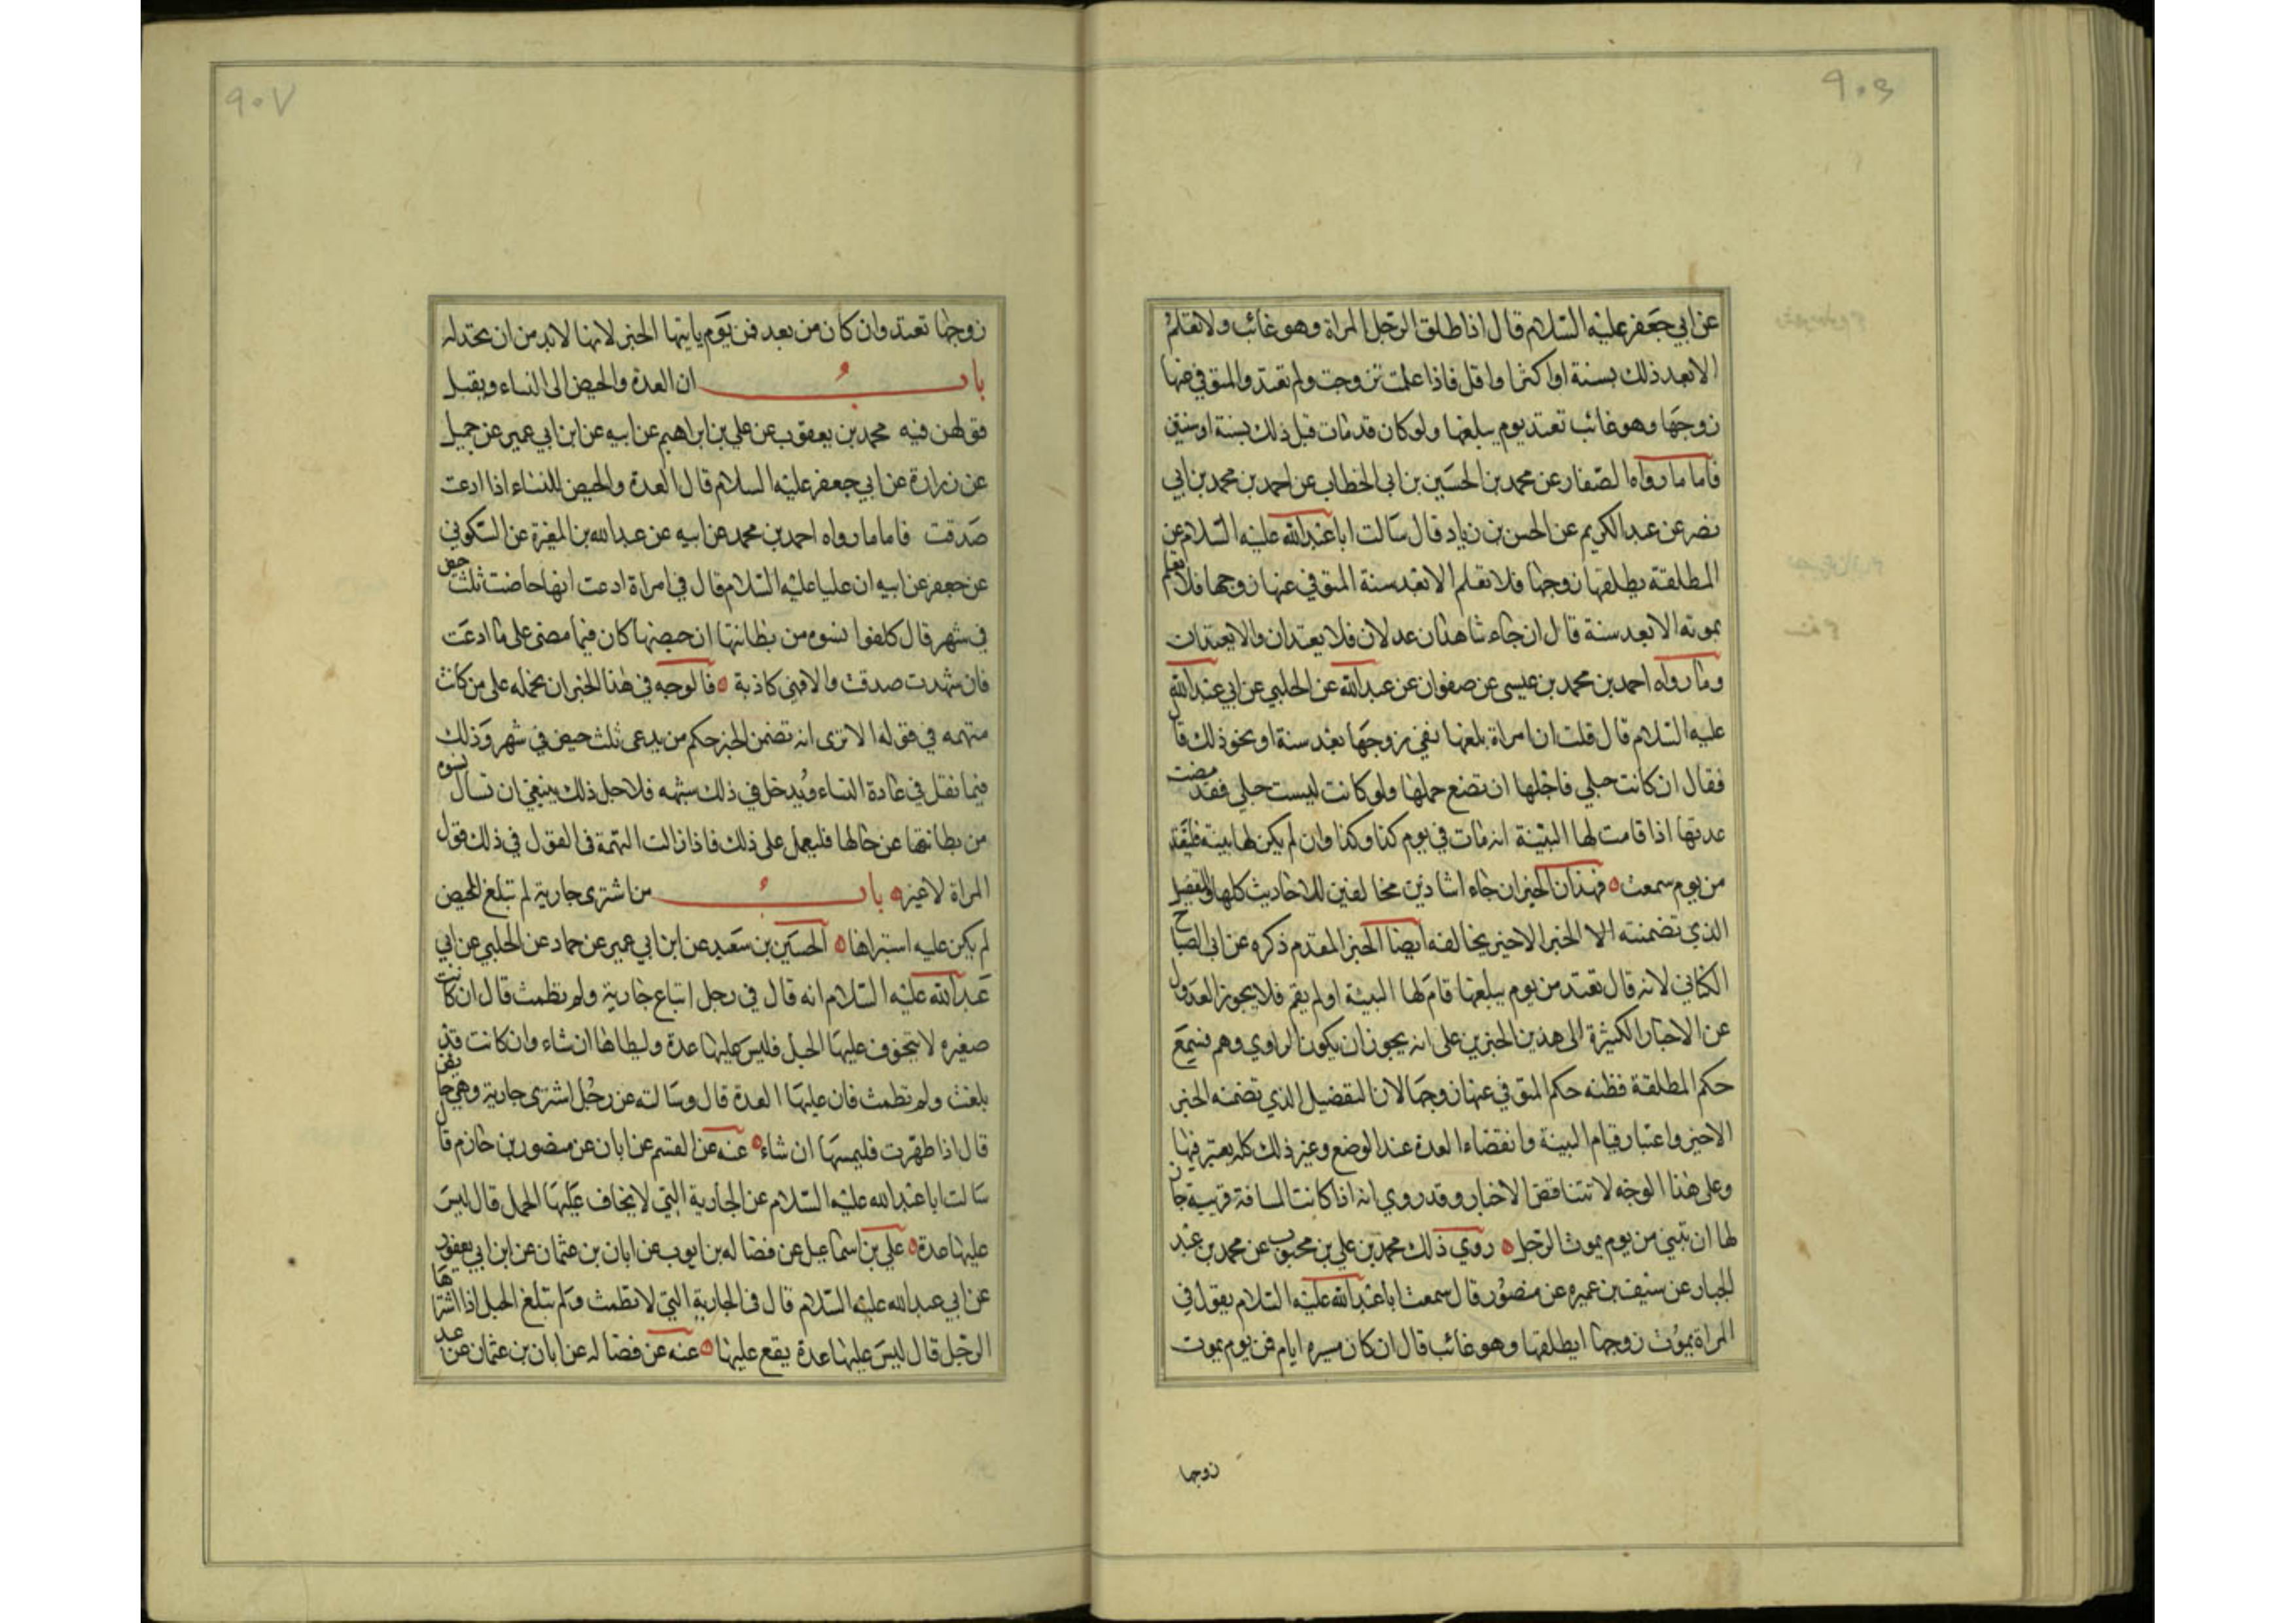 ٩٠٦
عن ابي جعفر عليه السلام قال اذا طلق الرجل المراة وهو غائب ولا تعلم
الا بعد ذلك بسنة او اكثر او اقل فاذا علمت تزوجت ولم تعتد والمتوفي عنها
زوجها وهو غائب تعتد يوم يبلغها ولو كان قد مات قبل ذلك بسنة او سنتين
فاما ما رواه الصفار عن محمد بن الحسين بن ابي الخطاب عن احمد بن محمد بن ابي
نصر عن عبد الكريم عن الحسن بن زياد قال سالت ابا عبد الله عليه السلام عن
المطلقة يطلقها زوجها فلا تعلم الا بعد سنة المتوفي عنها زوجها فلا تعلم
بموته الا بعد سنة قال ان جاء شاهدان عدلان فلا يعتدان والا يعتدان
وما رواه احمد بن محمد بن عيسى عن صفوان عن عبد الله عن الحلبي عن ابي عبد الله
عليه السلام قال قلت ان امراة بلغها نعي زوجها بعد سنة او نحو ذلك قال
فقال ان كانت حبلى فاجلها ان تضع حملها ولو كانت ليست حبلى فقد مضت
عدتها اذا قامت لها البينة انه مات في يوم كذا وكذا وان لم يكن لها بينة فلتعتد
من يوم سمعت ٥ فهذان الخبران جاءا شاذين مخالفين للاحاديث كلها والتفصيل
الذي تضمنته الا الخبر الاخير يخالفه ايضا الخبر المقدم ذكره عن ابي الصباح
الكناني لانه قال تعتد من يوم يبلغها قام لها البينة او لم يقم فلا يجوز العدول
عن الاخبار الكثيرة الى هذين الخبرين على انه يجوز ان يكون الراوي وهم فسمع
حكم المطلقة فظنه حكم المتوفي عنها زوجها لان التفضيل الذي تضمنه الخبر
الاخير واعتبار قيام البينة وانقضاء العدة عند الوضع وغير ذلك كله يعتبر فيها
وعلى هذا الوجه لا تتناقض الاخبار وقد روي انه اذا كانت المسافة قريبة جاز
لها ان تبني من يوم يموت الرجل ٥ روي ذلك محمد بن علي بن محبوب عن محمد بن عبد
الجبار عن سيف بن عميره عن منصور قال سمعت ابا عبد الله عليه السلام يقول في
المراة يموت زوجها او يطلقها وهو غائب قال ان كان مسيره ايام فمن يوم يموت
زوجها
٩٠٧
زوجها تعتد وان كان من بعد فمن يوم ياتيها الخبر لانها لابد من ان تحتد له
باب ان العدة والحيض الى النساء ويقبل
قولهن فيه محمد بن يعقوب عن علي بن ابراهيم عن ابيه عن ابن ابي عمير عن جميل
عن زرارة عن ابي جعفر عليه السلام قال العدة والحيض للنساء اذا ادعت
صدقت فاما ما رواه احمد بن محمد عن ابيه عن عبد الله بن المغيرة عن السكوني
عن جعفر عن ابيه ان عليا عليه السلام قال في امراة ادعت انها حاضت ثلث حيض
في شهر قال كلفوا نسوه من بطانتها ان حيضها كان فيما مضى على ما ادعت
فان شهدت صدقت والا فهي كاذبة ٥ فالوجه في هذا الخبر ان نحمله على من كانت
متهمه في قولها الا ترى انه تضمن الخبر حكم من يدعي ثلث حيض في شهر وذلك
فيما نقل في عادة النساء ويدخل في ذلك شبهه فلاجل ذلك ينبغي ان تسال نسوه
من بطانتها عن حالها فليعمل على ذلك فاذا زالت التهمة فالقول في ذلك قول
المراة لا غير ٥ باب من اشترى جارية لم تبلغ المحيض
لم يكن عليه استبراها ٥ الحسين بن سعيد عن ابن ابي عمير عن حماد عن الحلبي عن ابي
عبد الله عليه السلام انه قال في رجل ابتاع جارية ولم تطمث قال ان كانت
صغيره لا يتخوف عليها الحبل فليس عليها عدة وليطاها ان شاء وان كانت قد
بلغت ولم تطمث فان عليها العدة قال وسالته عن رجل اشترى جارية وهي حايض
قال اذا طهرت فليمسها ان شاء ٥ عنه عن القسم عن ابان عن منصور بن حازم قال
سالت ابا عبد الله عليه السلام عن الجارية التي لا يخاف عليها الحمل قال ليس
عليها عدة ٥ علي بن اسماعيل عن فضاله بن ايوب عن ابان بن عثمان عن ابن ابي يعفور
عن ابي عبد الله عليه السلام قال في الجارية التي لا تطمث ولم تبلغ الحبل اذا اشتراها
الرجل قال ليس عليها عدة يقع عليها ٥ عنه عن فضاله عن ابان بن عثمان عن عبد